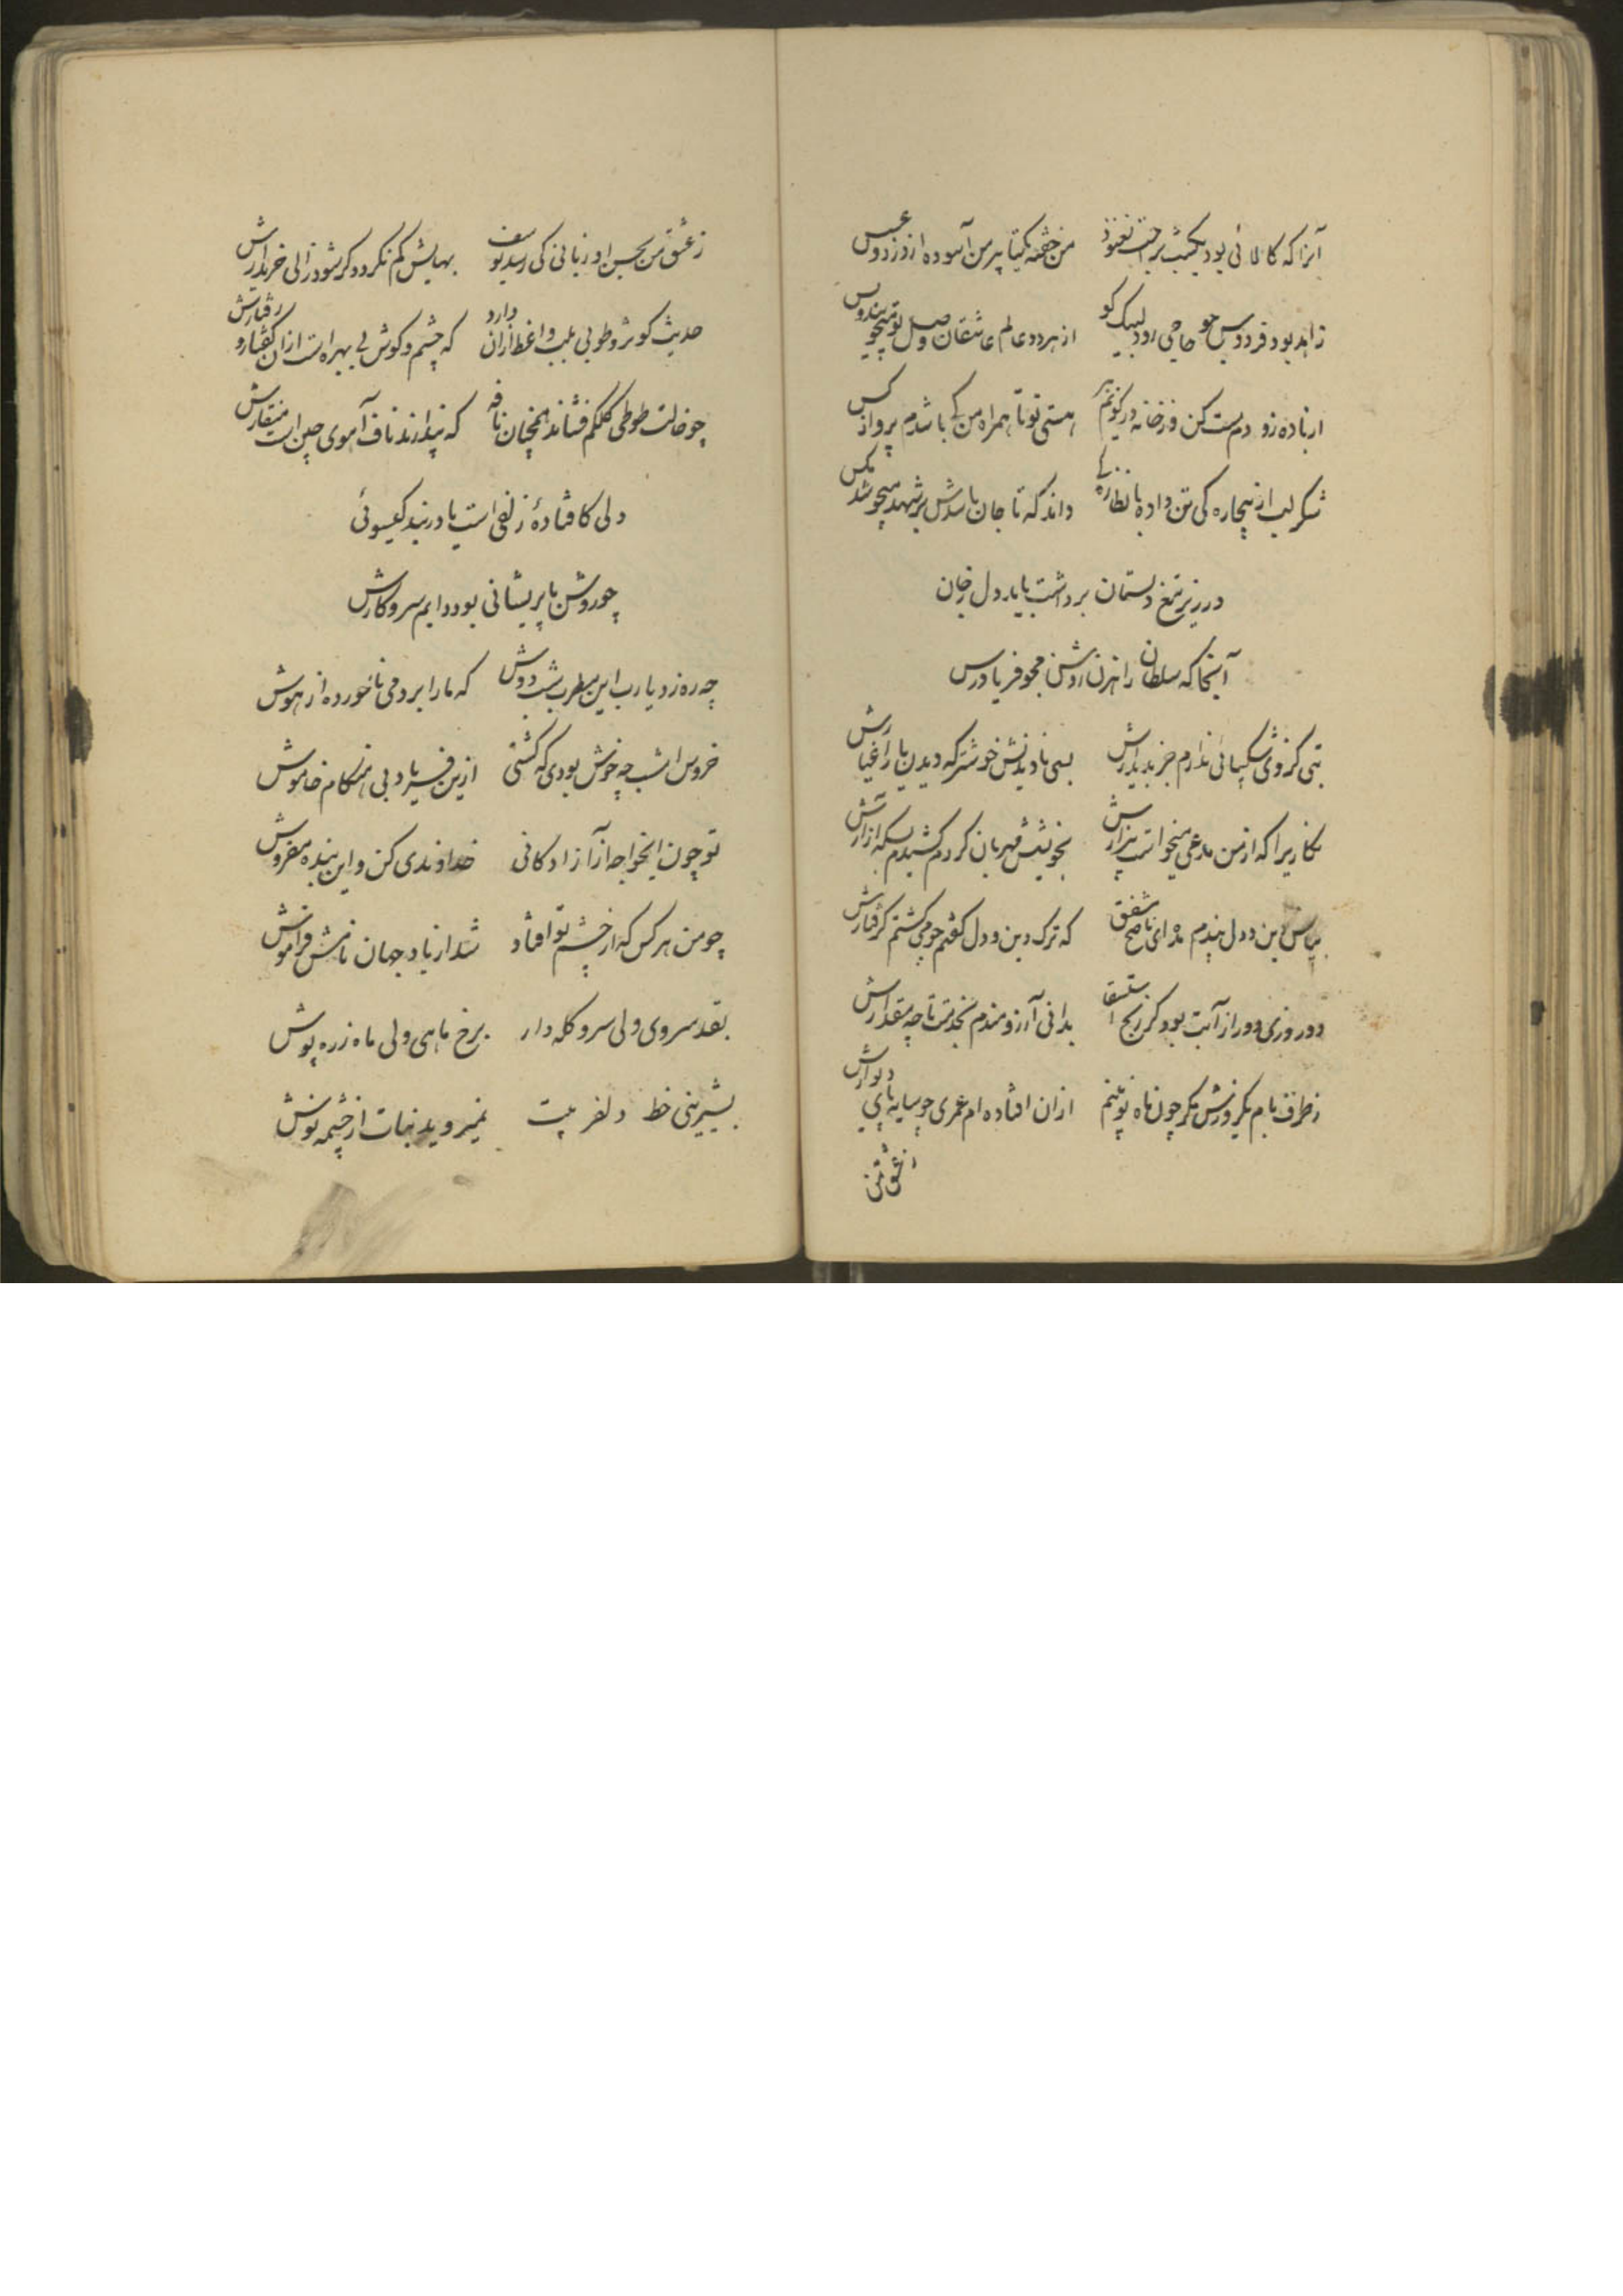 آنرا که کالائی بود یکشب براحت نغنود من خفته یکتا پیرهن آسوده از دزد و عسس
زاهد بود فردوس جو حاجی رود لبیک گو از هر دو عالم عاشقان وصل تو میجویند و بس
از باده زو دم مست کن وز خانه در کویم ببر هستی تو تا همراه من کی باشدم پروای کس
شکر لب از بیچاره کی تن داده با نظاره‌ٔ داند که تا جان باشدش بر شهد میجوشد مگس
در زیر تیغ دلستان برداشت باید دل ز جان
آنجا که سلطان راهزن روشن مجو فریادرس
بتی کز وی شکیبائی ندارم جز بدیدارش بسی نادیدنش خوشتر که دیدن یار اغیارش
نگاریرا که از من مدعی میخواست بیزارش بخویشش مهربان کردم کشیدم بسکه آزارش
بپاس دین و دل پندم مده ای ناصح مشفق که ترک دین و دل گفتم چو می گشتم گرفتارش
دو روزی دور از آبت بود گر رنج استسقا بدانی آرزومندم بخدمت تا چه مقدارش
ز طرف بام یکروزش مگر چون ماه نو بینم از آن افتاده‌ام عمری چو سایه پای دیوارش
ز عشق من
ز عشق من بحسن او زیانی کی رسد یوسف بهایش کم نگردد گر شود زالی خریدارش
حدیث کوثر و طوبی بلب واعظ از آن دارد که چشم و گوش بی بهره است از آن گفتار و رفتارش
چو خالت طوطی کلکم فشاند همچنان نافه که پندارند ناف آهوی چین است منقارش
دلی کافتادهٔ زلفی است یا در بند گیسوئی
چو روشن با پریشانی بود دایم سر و کارش
چه ره زد یارب این مطرب شب دوش که ما را برد می ناخورده از هوش
خروس امشب چه خوش بودی که گشتی ازین فریاد بی هنگام خاموش
تو چون ایخواجه آزادگانی خداوندی کن و این بنده مفروش
چو من هر کس که از چشم تو افتاد شد از یاد جهان نامش فراموش
بقد سروی ولی سرو کله دار برخ ماهی ولی ماه زره پوش
بشیرینی خط دلفریبت نمیروید نبات از چشمه نوش